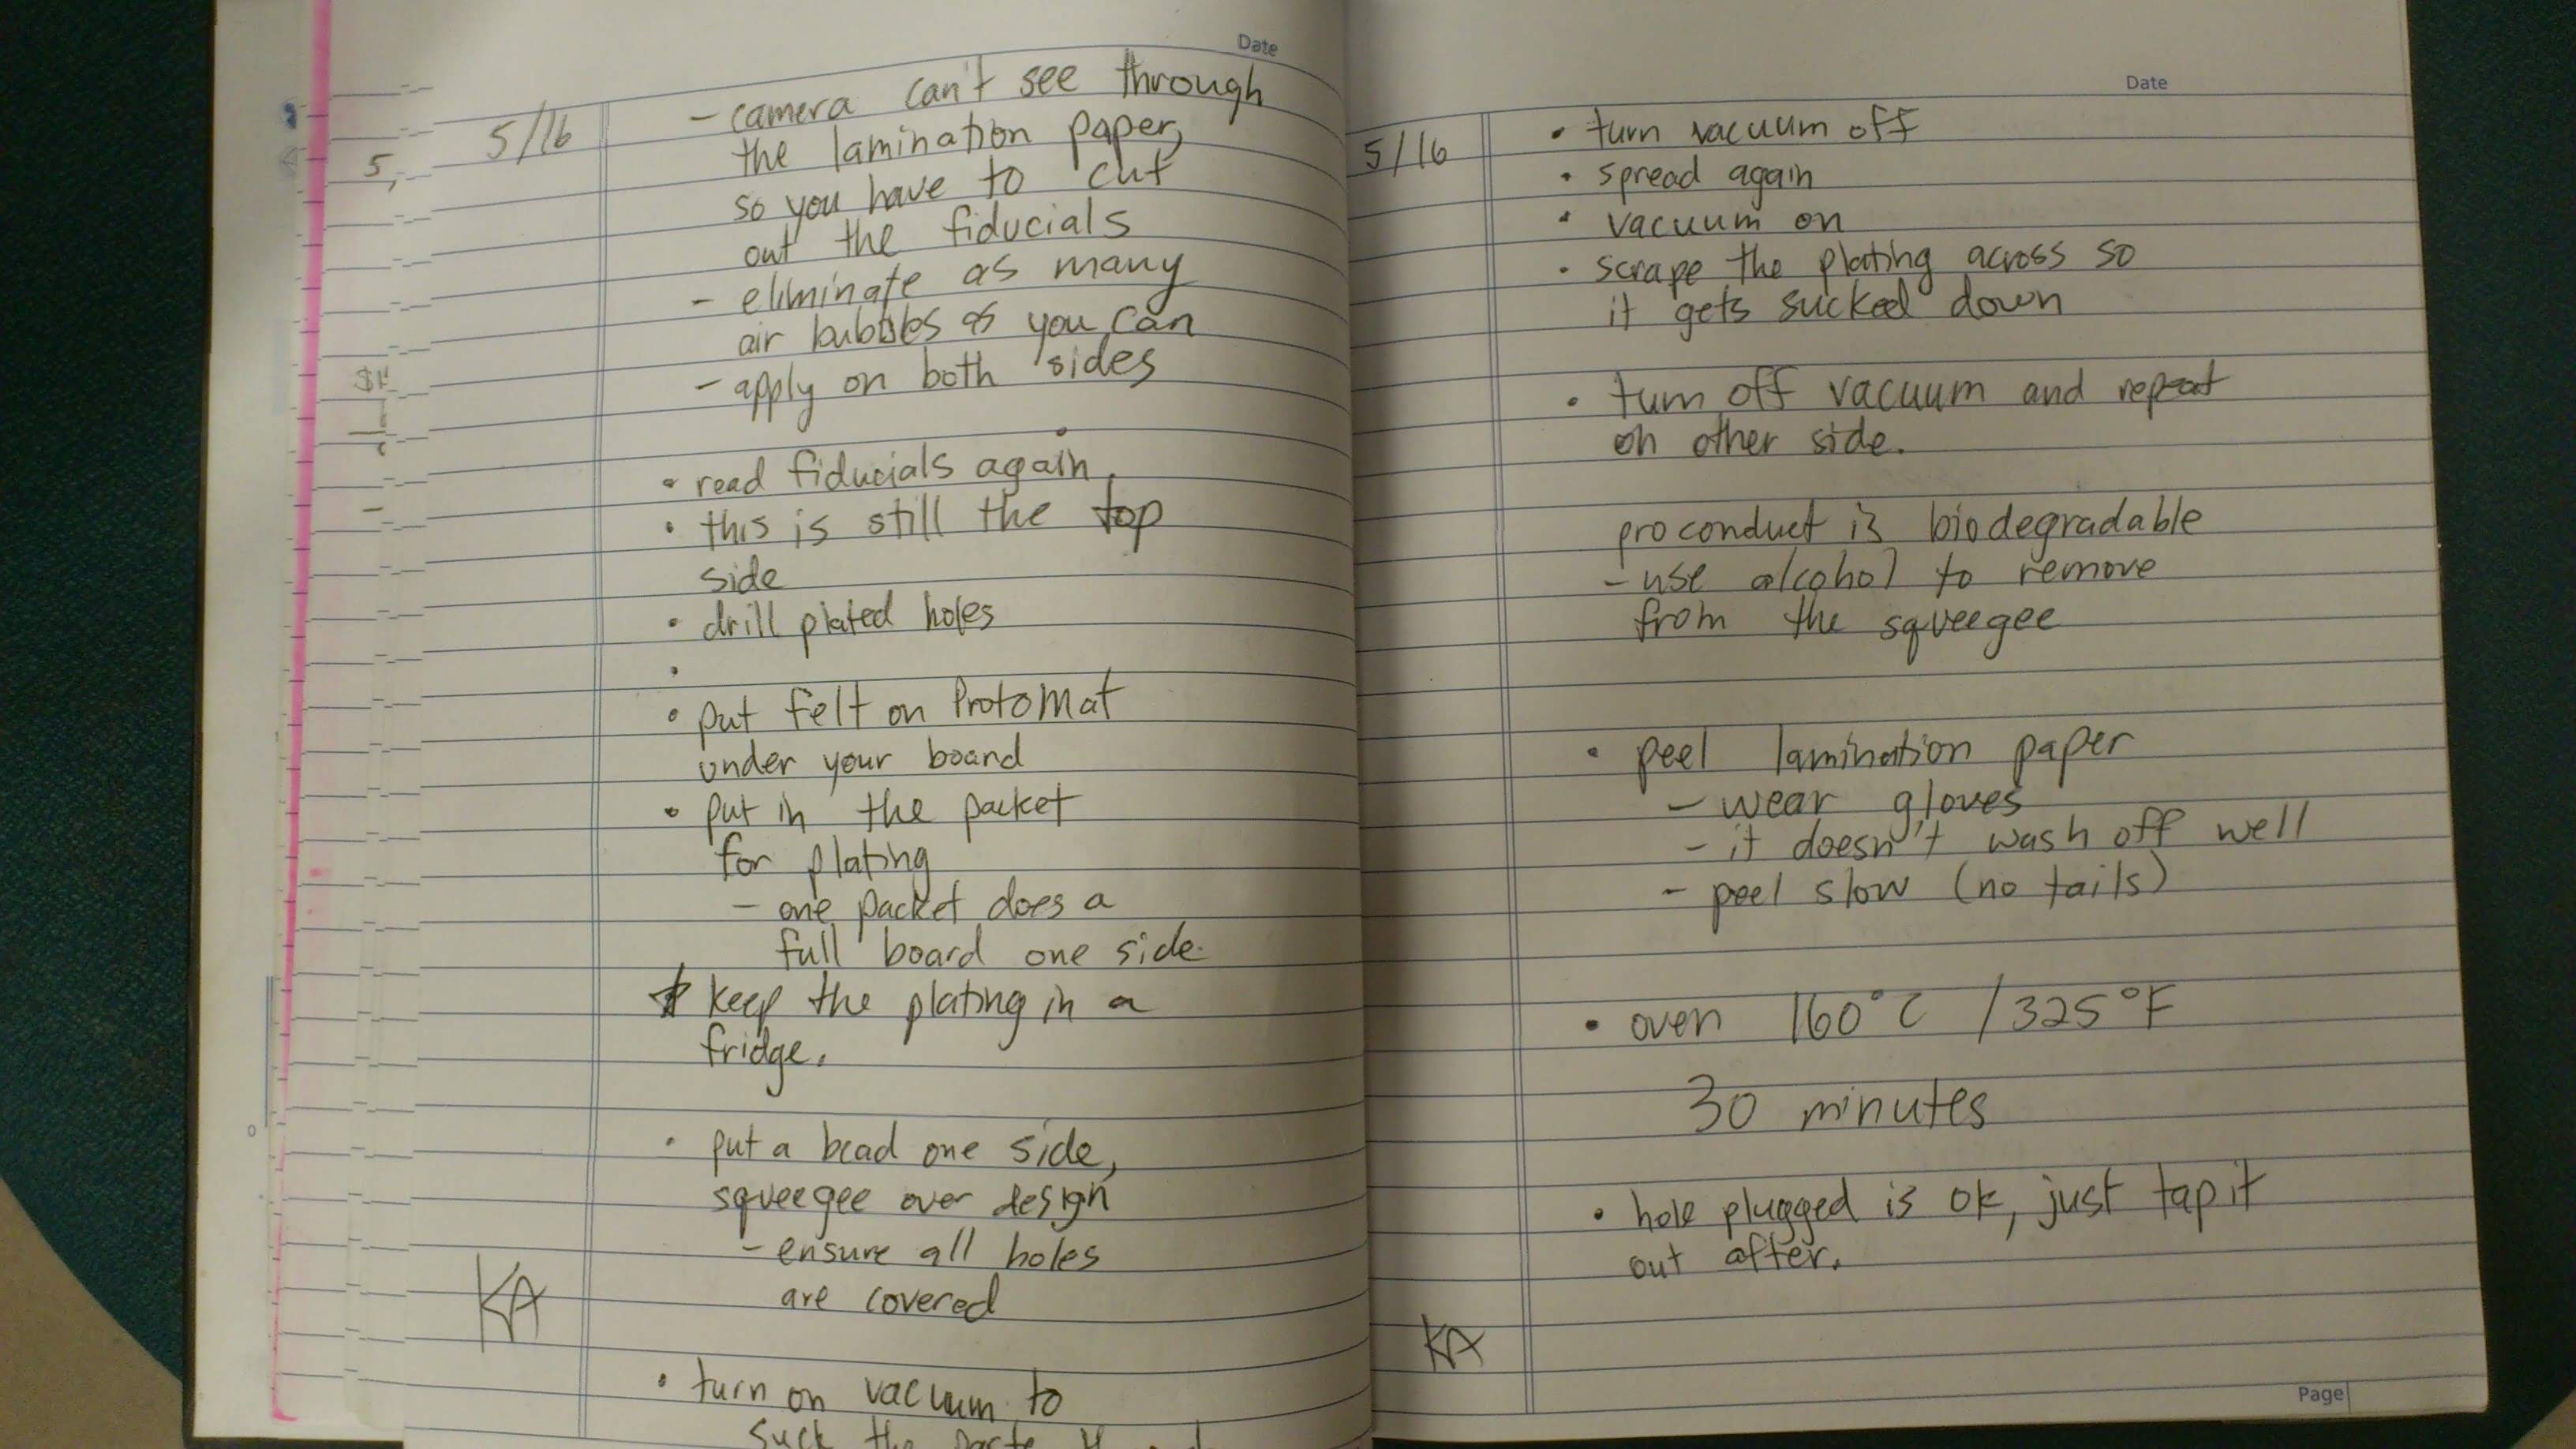 Date
5/16
- camera can't see through
the lamination paper,
so you have to cut
out the fiducials
- eliminate as many
air bubbles as you can
- apply on both sides
• read fiducials again
• this is still the top
side
• drill plated holes
•
• put felt on ProtoMat
under your board
• put in the packet
for plating
- one packet does a
full board one side
* keep the plating in a
fridge.
• put a bead one side,
squeegee over design
- ensure all holes
are covered
KA
• turn on vacuum to
suck the paste
Date
5/16
• turn vacuum off
• spread again
• vacuum on
• scrape the plating across so
it gets sucked down
• turn off vacuum and repeat
on other side.
proconduct is biodegradable
- use alcohol to remove
from the squeegee
• peel lamination paper
- wear gloves
- it doesn't wash off well
- peel slow (no tails)
• oven 160°C / 325°F
30 minutes
• hole plugged is ok, just tap it
out after.
KA
Page